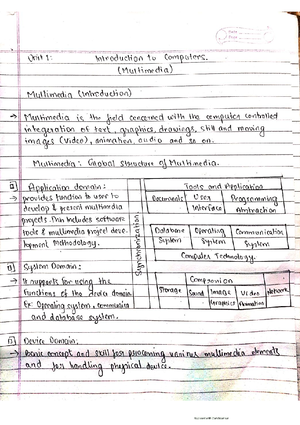 Unit 1: Introduction to Computers.
(Multimedia)
Multimedia (Introduction)
→ Multimedia is the field concerned with the computer controlled
integeration of text, graphics, drawings, still and moving
images (Video), animation, audio and so on.
Multimedia: Global Structure of Multimedia.
Application domain:
→ provides function to user to
develop & present multimedia
projects. This includes software
tools & multimedia project deve-
lopment methodology.
Synchronization
Tools and Application
Documents User Interface Programming Abstraction
Database System Operating System Communication System
Computer Technology.
System Domain:
→ It supports for using the
functions of the device domain
Ex: Operating system, communication
and database system.
Storage Sound Image Video Animation Network
Device Domain:
→ Basic concept and skill for processing various multimedia elements
and for handling physical device.